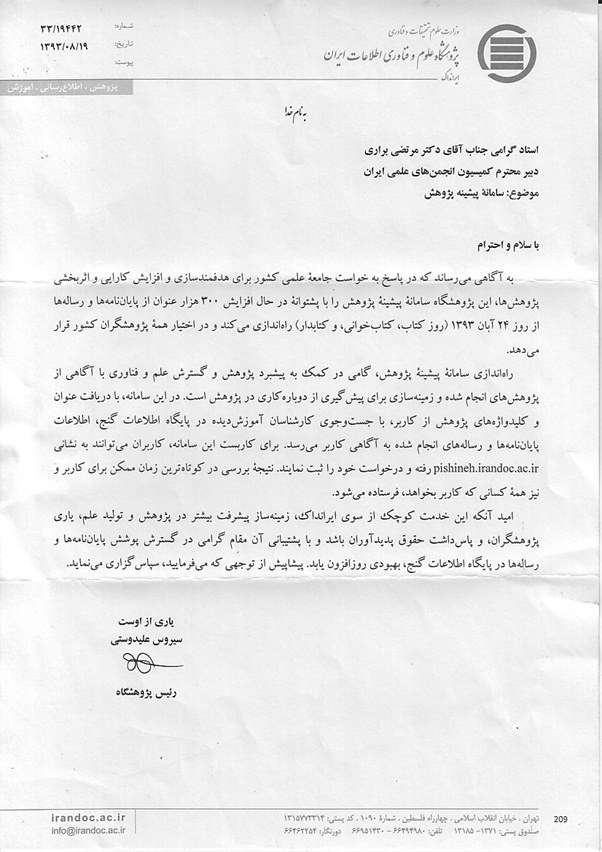 وزارت علوم تحقیقات و فناوری
پژوهشگاه علوم و فناوری اطلاعات ایران
ایرانداک
شماره: ۳۳/۱۹۴۴۲
تاریخ: ۱۳۹۳/۰۸/۱۹
پیوست:
پژوهش . اطلاع‌رسانی . آموزش
به نام خدا
استاد گرامی جناب آقای دکتر مرتضی براری
دبیر محترم کمیسیون انجمن‌های علمی ایران
موضوع: سامانهٔ پیشینه پژوهش
با سلام و احترام
به آگاهی می‌رساند که در پاسخ به خواست جامعهٔ علمی کشور برای هدفمندسازی و افزایش کارایی و اثربخشی
پژوهش‌ها، این پژوهشگاه سامانهٔ پیشینهٔ پژوهش را با پشتوانهٔ در حال افزایش ۳۰۰ هزار عنوان از پایان‌نامه‌ها و رساله‌ها
از روز ۲۴ آبان ۱۳۹۳ (روز کتاب، کتاب‌خوانی، و کتابدار) راه‌اندازی می‌کند و در اختیار همهٔ پژوهشگران کشور قرار
می‌دهد.
راه‌اندازی سامانهٔ پیشینهٔ پژوهش، گامی در کمک به پیشبرد پژوهش و گسترش علم و فناوری با آگاهی از
پژوهش‌های انجام شده و زمینه‌سازی برای پیش‌گیری از دوباره‌کاری در پژوهش است. در این سامانه، با دریافت عنوان
و کلیدواژه‌های پژوهش از کاربر، با جست‌وجوی کارشناسان آموزش‌دیده در پایگاه اطلاعات گنج، اطلاعات
پایان‌نامه‌ها و رساله‌های انجام شده به آگاهی کاربر می‌رسد. برای کاربست این سامانه، کاربران می‌توانند به نشانی
pishineh.irandoc.ac.ir رفته و درخواست خود را ثبت نمایند. نتیجهٔ بررسی در کوتاه‌ترین زمان ممکن برای کاربر و
نیز همهٔ کسانی که کاربر بخواهد، فرستاده می‌شود.
امید آنکه این خدمت کوچک از سوی ایرانداک، زمینه‌ساز پیشرفت بیشتر در پژوهش و تولید علم، یاری
پژوهشگران، و پاس‌داشت حقوق پدیدآوران باشد و با پشتیبانی آن مقام گرامی در گسترش پوشش پایان‌نامه‌ها و
رساله‌ها در پایگاه اطلاعات گنج، بهبودی روزافزون یابد. پیشاپیش از توجهی که می‌فرمایید، سپاس‌گزاری می‌نماید.
یاری از اوست
سیروس علیدوستی
رئیس پژوهشگاه
209
تهران . خیابان انقلاب اسلامی . چهارراه فلسطین . شمارهٔ ۱۰۹۰ . کد پستی: ۱۳۱۵۷۷۳۳۱۴
صندوق پستی: ۱۳۷۱-۱۳۱۸۵ تلفن: ۶۶۴۹۴۹۸۰ - ۶۶۹۵۱۴۳۰ دورنگار: ۶۶۴۶۲۲۵۴
irandoc.ac.ir
info@irandoc.ac.ir